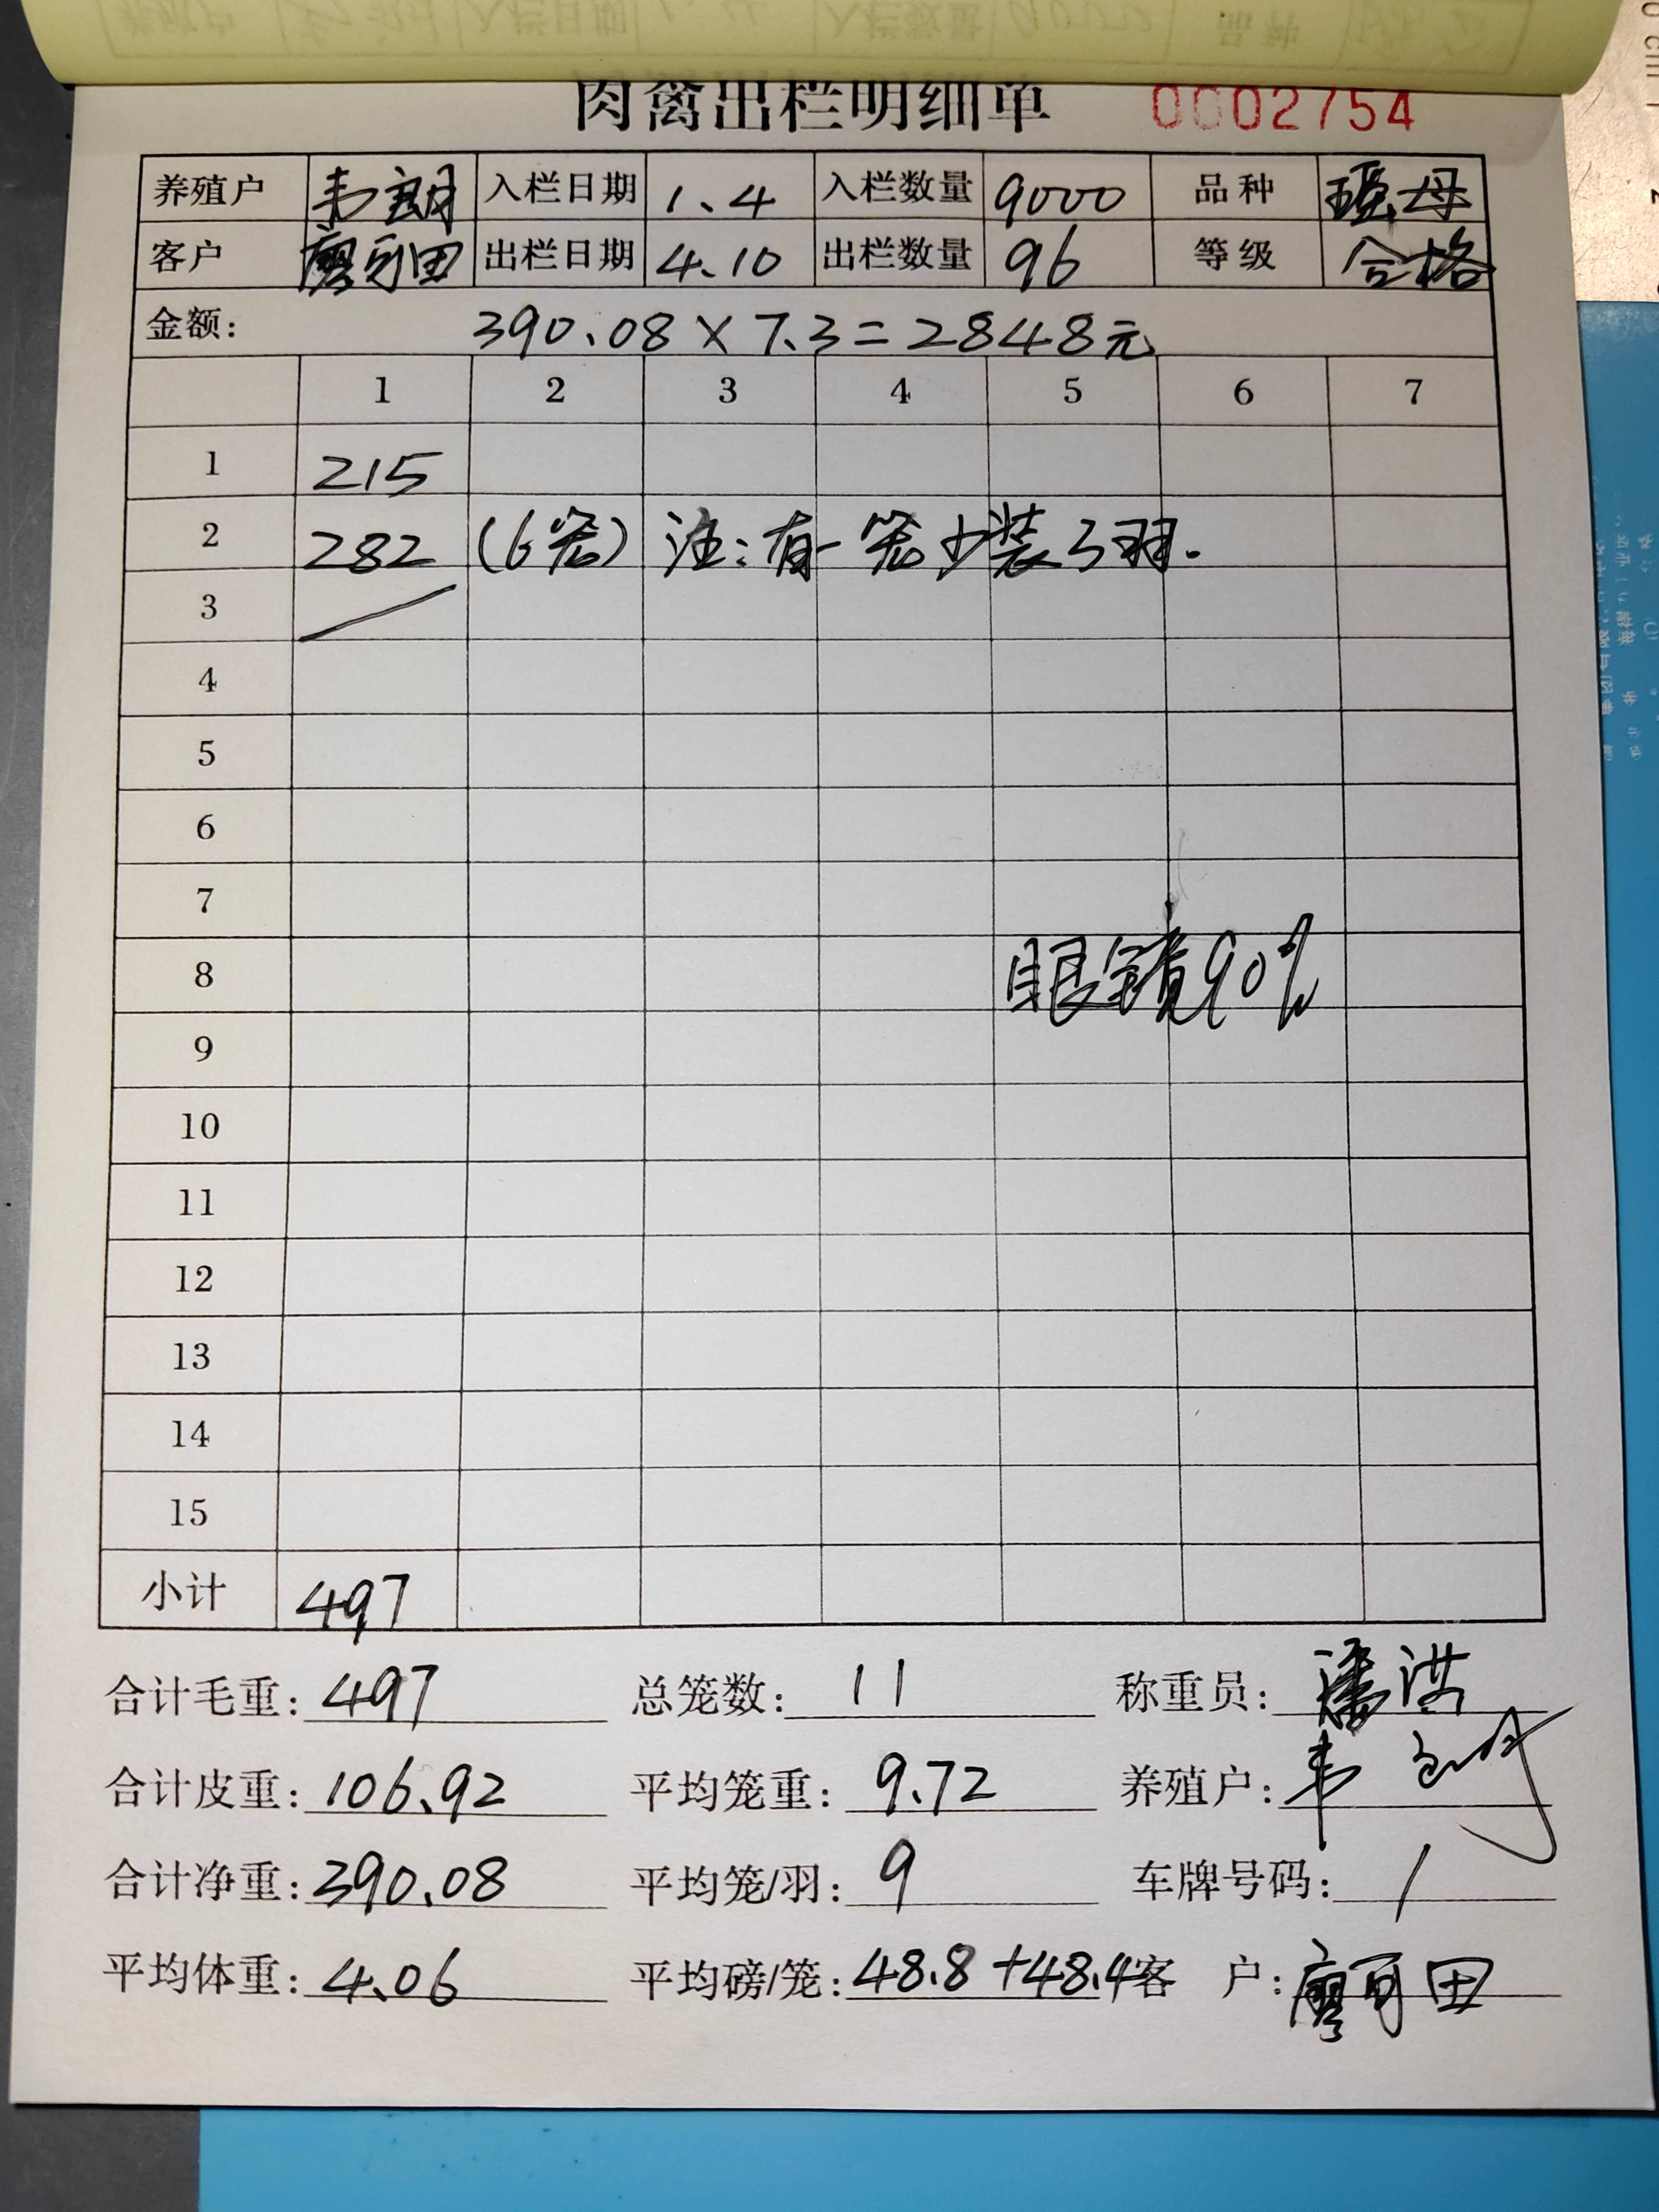 肉禽出栏明细单 0002754
养殖户 韦朗 入栏日期 1.4 入栏数量 9000 品种 母
客户 廖可田 出栏日期 4.10 出栏数量 96 等级 合格
金额: 390.08×7.3=2848元
1 2 3 4 5 6 7
1 215
2 282 (6笼) 注:有一笼少装3羽.
3
4
5
6
7
8 眼镜90%
9
10
11
12
13
14
15
小计 497
合计毛重: 497 总笼数: 11 称重员: 潘洪
合计皮重: 106.92 平均笼重: 9.72 养殖户: 韦朗
合计净重: 390.08 平均笼/羽: 9 车牌号码: /
平均体重: 4.06 平均磅/笼: 48.8+48.4 客户: 廖可田